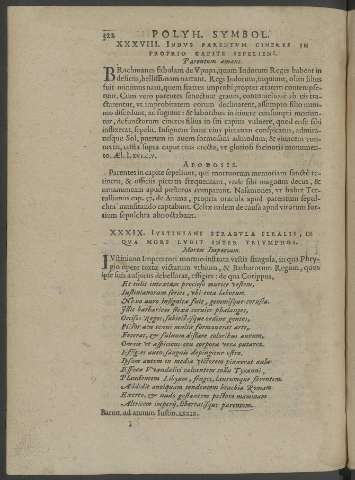 322 POLYH. SYMBOL.
XXXVIII. INDVS PARENTVM CINERES IN
PROPRIO CAPITE SEPELIENS.
Parentum amans.
BRachmanes fabulam de Vpupa, quam Indorum Reges habent in
deliciis, bellissimam narrant. Regi Indorum, inquiunt, olim filius
fuit minimus natu, quem fratres improbi propter ætatem contempse-
runt. Cum vero parentes senectute graves, contumeliose ab iis tra-
ctarentur, vt improbitatem eorum declinarent, assumpto filio mini-
mo discedunt, ac fugiunt: & laboribus in itinere consumpti moriun-
tur, & functorum cineres filius in sui capitis vulnere, quod ense sibi
inflixerat, sepelit. Insignem hanc eius pietatem conspicatus, admira-
tusque Sol, puerum in auem formosam
crista supra caput eius erecta, vt gloriosi facinoris monumen-
to. Æl. l. xvi. c. v.
APODOSIS.
Parentes in capite sepeliunt, qui mortuorum memoriam sancte re-
tinent, & officiis pietatis frequentant, vnde sibi magnum decus, &
ornamentum apud posteros promerentur. Nasamones, vt habet Ter-
tullianus cap. 57. de Anima, propria oracula apud parentum sepul-
chra mansitando captabant. Celtæ eadem de causa apud virorum for-
tium sepulchra abnoctabant.
XXXIX. IVSTINIANI STRAGVLA FERALIS, IN
QVA MORS LVGIT INTER TRIVMPHOS.
Mortes Imperium.
IVstiniano Imperatori mortuo instrata vestis stragula, in qua Phry-
gio opere texta visitatum vrbium, & Barbarorum Regum, quos
ipse suis auspiciis debellarat, effigies: de qua Corippus,
Et tulit intextam precioso murice vestem,
Iustinianorum series, vbi tota laborum
Nexo auro insignita fuit, gemmisque corusca.
Illic barbaricas flexa cervice phalanges,
Occisos Reges, subiectasque ordine gentes,
Pictor acu tenui multa formaverat arte,
Fecerat, & fulvum distare coloribus aurum,
Omnis vt aspiciens ea corpora vera putaret.
Effigies auro, sanguis depingitur ostro.
Ipsum autem in media victorem pinxerat aula
Effera Vvandalici calcantem colla Tyranni,
Plaudentem Libyam, fruges, laurumque ferentem.
Addidit antiquam tendentem brachia Romam
Exerto, & nudo gestantem pectore mammam
Altricem imperii, libertatisque parentem.
Baron. ad annum Iustin.